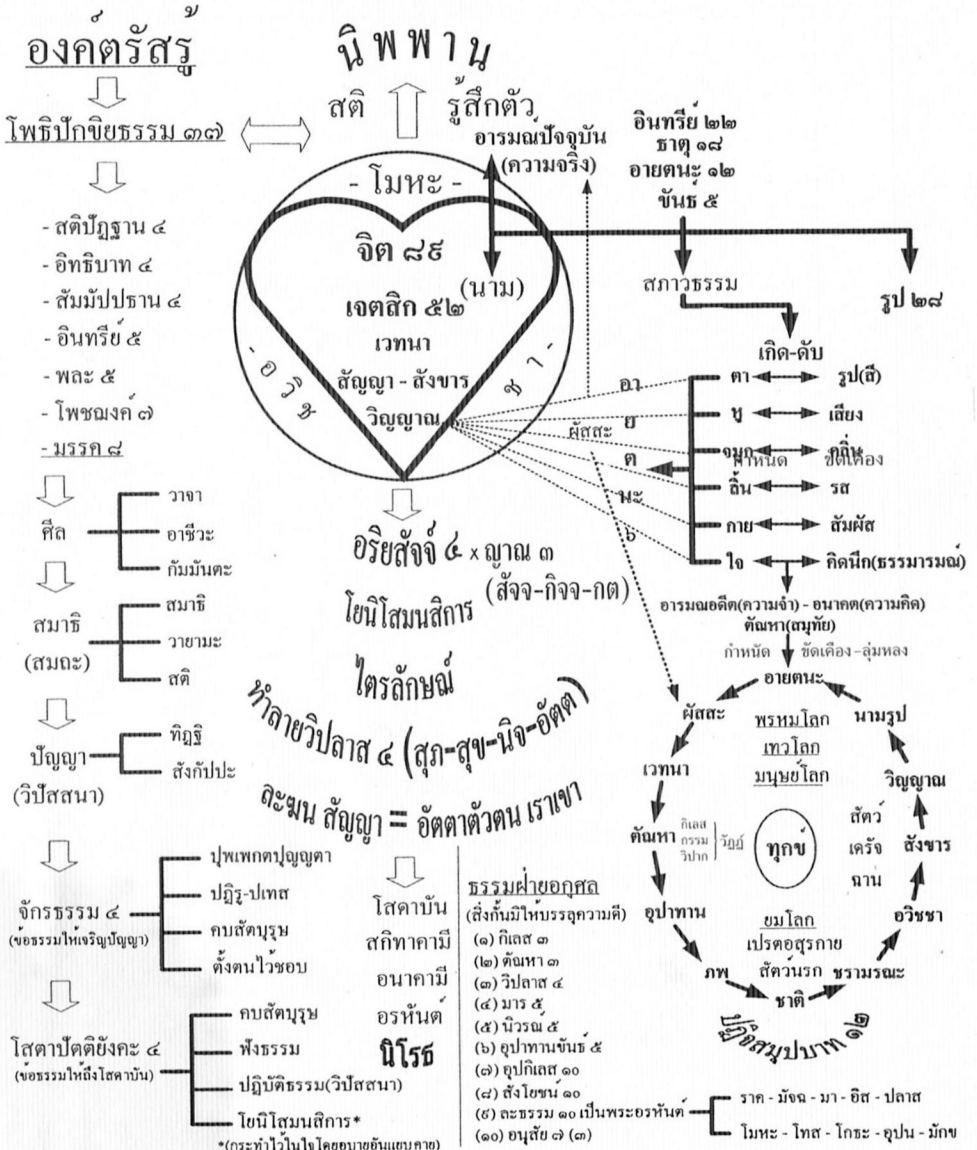 องค์ตรัสรู้
โพธิปักขิยธรรม ๓๗
- สติปัฏฐาน ๔
- อิทธิบาท ๔
- สัมมัปปธาน ๔
- อินทรีย์ ๕
- พละ ๕
- โพชฌงค์ ๗
- มรรค ๘
ศีล
วาจา
อาชีวะ
กัมมันตะ
สมาธิ
(สมถะ)
สมาธิ
วายามะ
สติ
ปัญญา
(วิปัสสนา)
ทิฏฐิ
สังกัปปะ
จักรธรรม ๔
(ข้อธรรมให้เจริญปัญญา)
ปุพเพกตปุญญตา
ปฏิรู-ปเทส
คบสัตบุรุษ
ตั้งตนไว้ชอบ
โสตาปัตติยังคะ ๔
(ข้อธรรมให้ถึงโสดาบัน)
คบสัตบุรุษ
ฟังธรรม
ปฏิบัติธรรม(วิปัสสนา)
โยนิโสมนสิการ*
*(กระทำไว้ในใจโดยอุบายอันแยบคาย)
นิพพาน
สติ รู้สึกตัว
อารมณ์ปัจจุบัน
(ความจริง)
- โมหะ -
- อวิช
ชา -
จิต ๘๙
เจตสิก ๕๒
(นาม)
เวทนา
สัญญา - สังขาร
วิญญาณ
อริยสัจจ์ ๔ x ญาณ ๓
(สัจจ-กิจจ-กต)
โยนิโสมนสิการ
ไตรลักษณ์
ทำลายวิปลาส ๔ (สุภ-สุข-นิจ-อัตต)
ละฆน สัญญา = อัตตาตัวตน เราเขา
โสดาบัน
สกิทาคามี
อนาคามี
อรหันต์
นิโรธ
อินทรีย์ ๒๒
ธาตุ ๑๘
อายตนะ ๑๒
ขันธ์ ๕
สภาวธรรม
รูป ๒๘
เกิด-ดับ
อา
ย
ต
นะ
๖
ผัสสะ
ตา รูป(สี)
หู เสียง
จมูก กลิ่น
กำหนัด ขัดเคือง
ลิ้น รส
กาย สัมผัส
ใจ คิดนึก(ธรรมารมณ์)
อารมณอดีต(ความจำ) - อนาคต(ความคิด)
ตัณหา(สมุทัย)
กำหนัด ขัดเคือง-ลุ่มหลง
อายตนะ
ผัสสะ
เวทนา
ตัณหา
กิเลส
กรรม
วิปาก
วัฏฏ์
อุปาทาน
ภพ
ชาติ
ชรามรณะ
อวิชชา
สังขาร
วิญญาณ
นามรูป
พรหมโลก
เทวโลก
มนุษย์โลก
ทุกข์
สัตว์
เดรัจ
ฉาน
ยมโลก
เปรตอสุรกาย
สัตว์นรก
ปฏิจสมุปบาท ๑๒
ธรรมฝ่ายอกุศล
(สิ่งกั้นมิให้บรรลุความดี)
(๑) กิเลส ๓
(๒) ตัณหา ๓
(๓) วิปลาส ๔
(๔) มาร ๕
(๕) นิวรณ์ ๕
(๖) อุปาทานขันธ์ ๕
(๗) อุปกิเลส ๑๐
(๘) สังโยชน์ ๑๐
(๙) ละธรรม ๑๐ เป็นพระอรหันต์
(๑๐) อนุสัย ๗ (๓)
ราค - มัจฉ - มา - อิส - ปลาส
โมหะ - โทส - โกธะ - อุปน - มักข